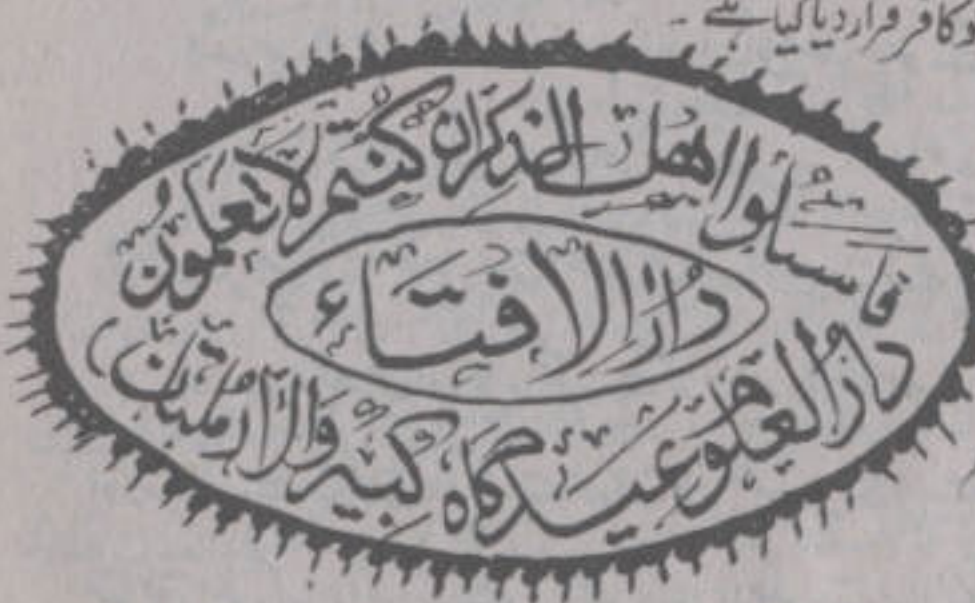 کافر قرار دیا گیا ہے ۔
فاسئلوا اهل الذکر ان کنتم لا تعلمون
دار الافتاء
دار العلوم عیدگاہ کبیر والا (ملتان)